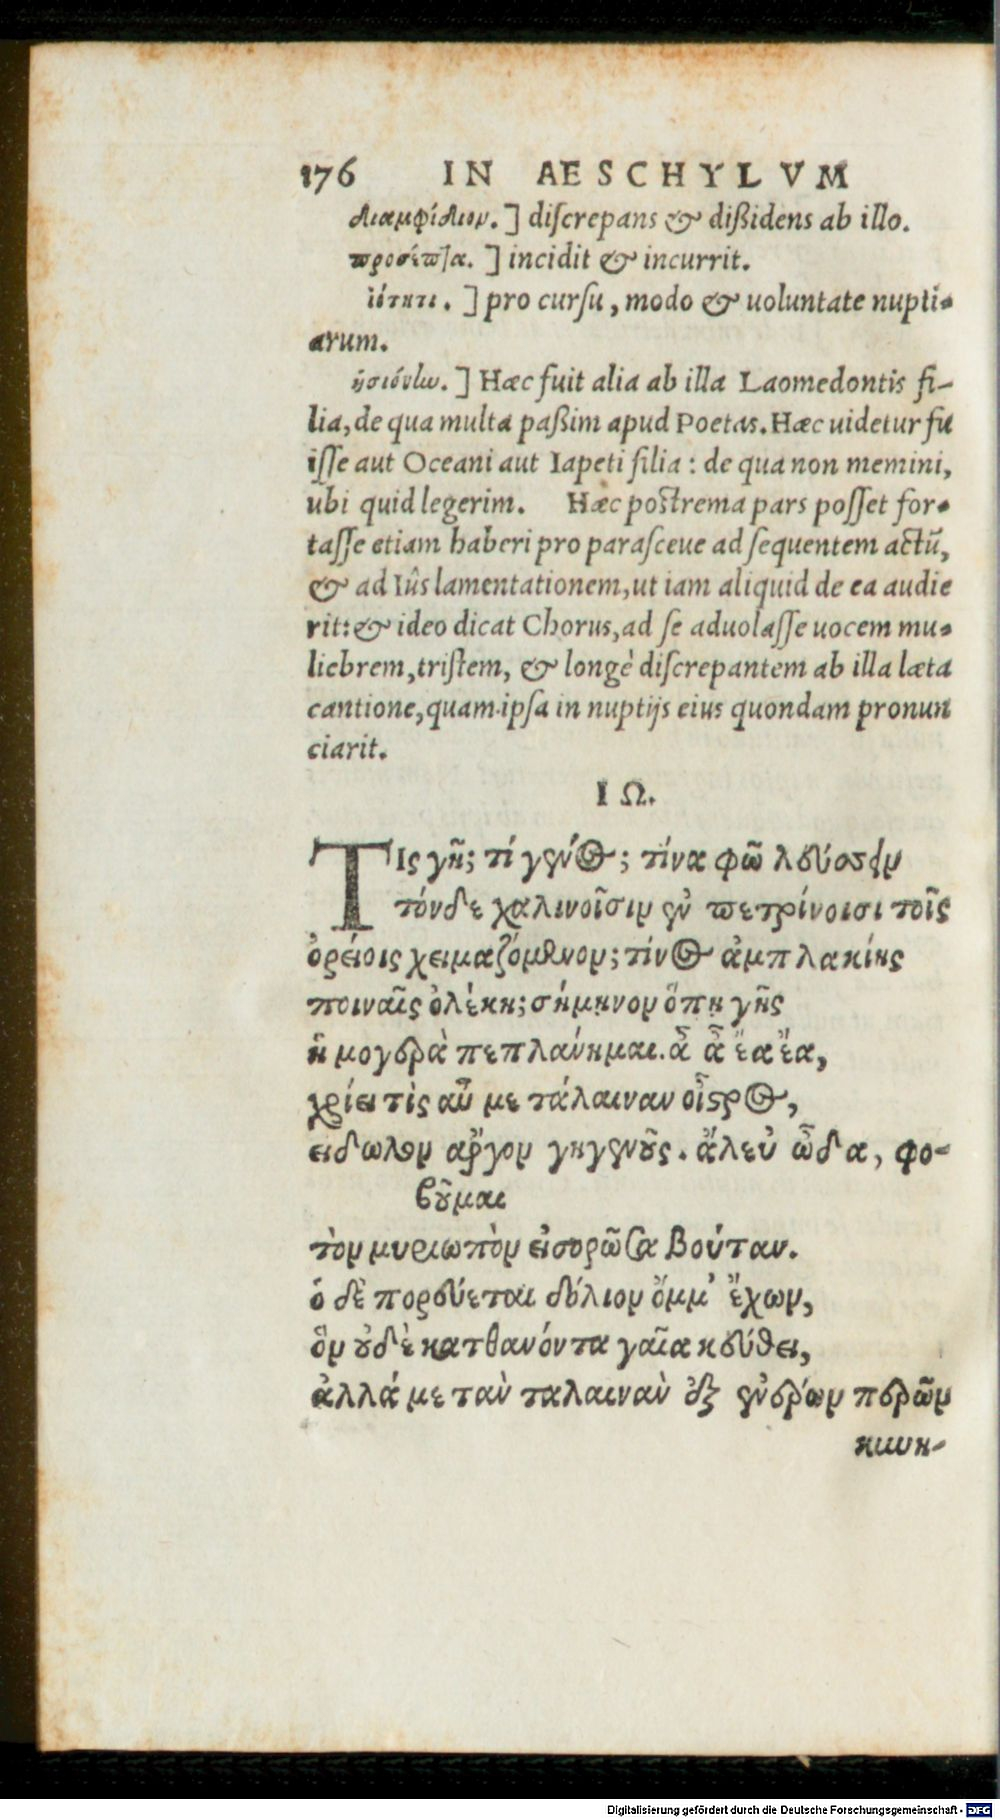 176 IN AESCHYLVM
διαμφίδιον. ] diſcrepans & dißidens ab illo.
προσέπτα. ] incidit & incurrit.
ἰότητι. ] pro curſu, modo & uoluntate nupti-
arum.
ἡσιόνην. ] Hæc fuit alia ab illa Laomedontis fi-
lia, de qua multa paßim apud Poetas. Hæc uidetur fu
iſſe aut Oceani aut Iapeti filia: de qua non memini,
ubi quid legerim. Hæc poſtrema pars poſſet for-
taſſe etiam haberi pro paraſceue ad ſequentem actũ,
& ad Iûs lamentationem, ut iam aliquid de ea audie
rit: & ideo dicat Chorus, ad ſe aduolaſſe uocem mu-
liebrem, triſtem, & longè diſcrepantem ab illa læta
cantione, quam ipſa in nuptijs eius quondam pronun
ciarit.
ΙΩ.
Τις γῆ; τί γένος; τίνα φῶ λεύσσειν
τόνδε χαλινοῖσιν ἐν πετρίνοισι τοῖς
ὀρείοις χειμαζόμενον; τίνος ἀμπλακίης
ποιναῖς ὀλέκη; σήμηνον ὅπη γῆς
ἡ μογερὰ πεπλάνημαι. ἆ ἆ ἔα ἔα,
χρίει τὶς αὖ με τάλαιναν οἶστρος,
ειδωλον ἄργον γηγενοῦς. ἄλευ ὦ δα, φο-
βοῦμαι
τὸν μυριωπὸν εἰσορῶσα βούταν.
ὁ δὲ πορεύεται δόλιον ὄμμ' ἔχων,
ὃν οὐδὲ κατθανόντα γαῖα κεύθει,
ἀλλά με τὰν ταλαινὰν ἐξ ἐνέρων περῶν
κυνη-
Digitalisierung gefördert durch die Deutsche Forschungsgemeinschaft - DFG